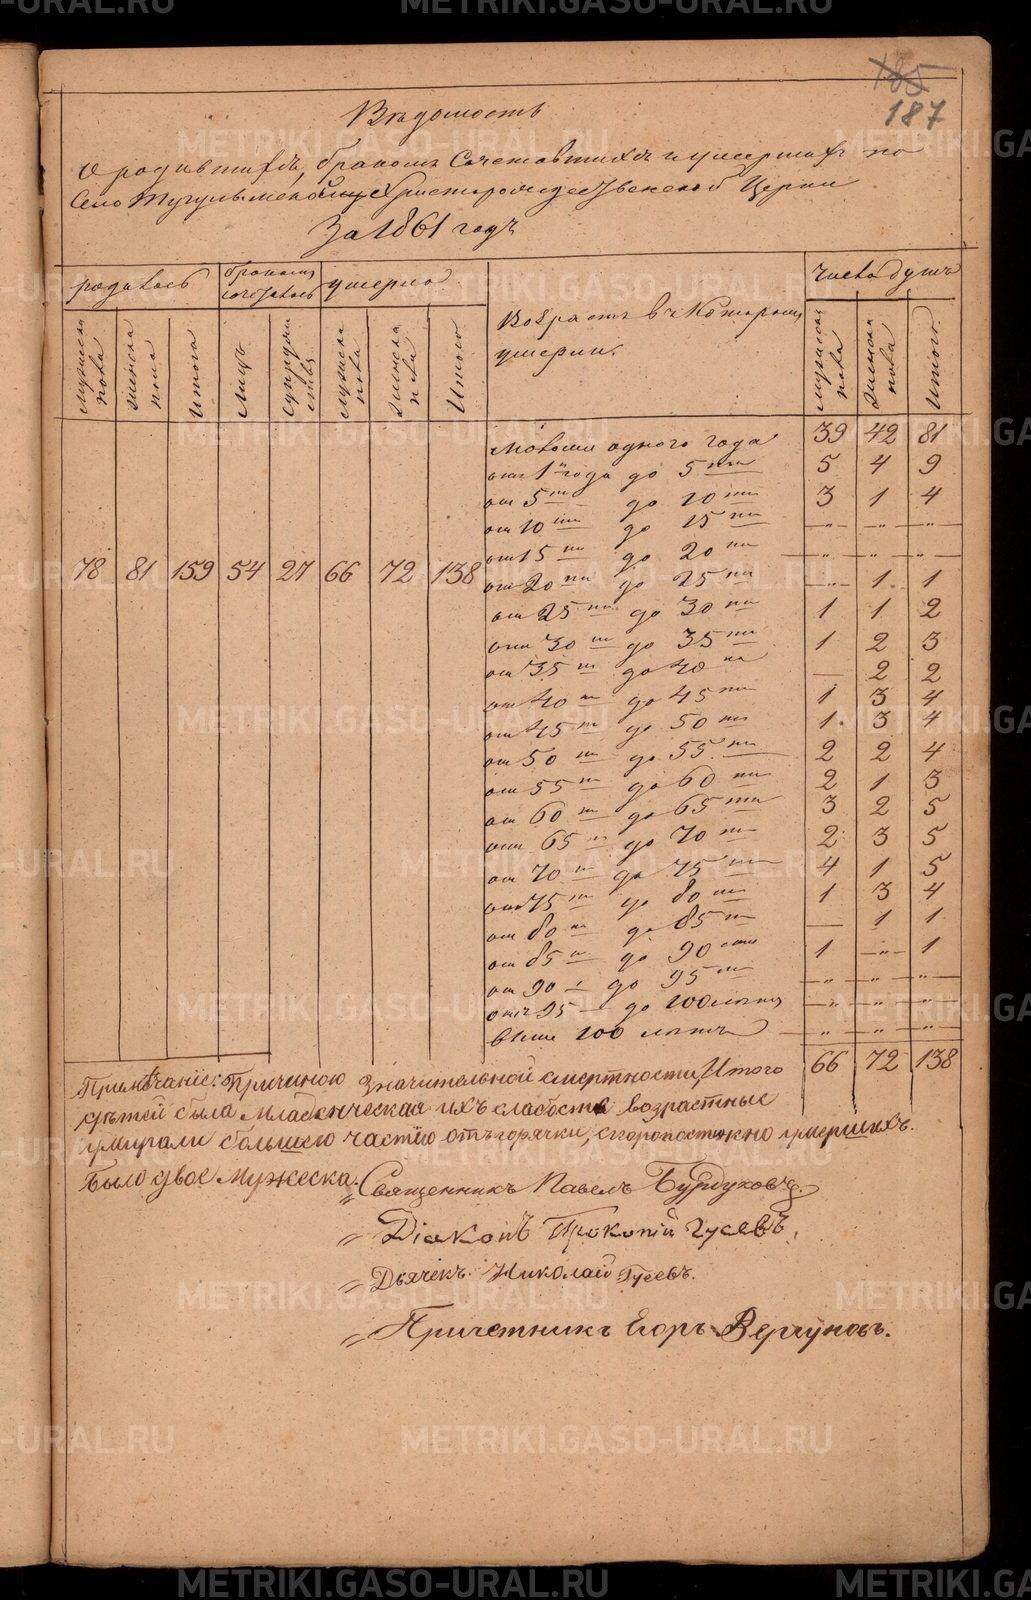 185
187
Вѣдомость
о родившихся, бракомъ Сочетавшихся и умершихъ по
Христорождественской Церкви
За 1861 годъ
родилось бракомъ сочеталось умерло Возрастъ въ которомъ умерли. число душъ
мужеска пола женска пола Итого Лицъ Супружествъ мужеска пола женска пола Итого мужеска пола женска пола Итого.
78 81 159 54 27 66 72 138
моложе одного года 39 42 81
отъ 1го года до 5ти 5 4 9
от 5ти до 10ти 3 1 4
от 10ти до 15ти — „ — — „ — — „ —
от 15ти до 20ти — „ — — „ — — „ —
от 20ти до 25ти — „ — 1 1
от 25ти до 30ти 1 1 2
от 30ти до 35ти 1 2 3
от 35ти до 40ка — 2 2
от 40ка до 45ти 1 3 4
от 45ти до 50ти 1 3 4
от 50ти до 55ти 2 2 4
от 55ти до 60ти 2 1 3
от 60ти до 65ти 3 2 5
от 65ти до 70ти 2 3 5
от 70ти до 75ти 4 1 5
от 75ти до 80ти 1 3 4
от 80ти до 85ти — 1 1
от 85ти до 90сто 1 — „ — 1
от 90 до 95ти — „ — — „ — — „ —
отъ 95 до 100 лѣтъ — „ — — „ — — „ —
выше 100 лѣтъ — „ — — „ — — „ —
Итого 66 72 138
Примѣчаніе: Причиною значительной смертности
дѣтей была младенческая ихъ слабость возрастные
умирали большею частію отъ горячки, скоропостижно умершихъ.
Было двое Мужеска.
„ Священникъ Павелъ Бурдуковъ.
„ Діаконъ Прокопій Гусевъ.
„ Дьячекъ. Николай Гусевъ.
„ Причетникъ Егоръ Вергуновъ.
METRIKI.GASO-URAL.RU